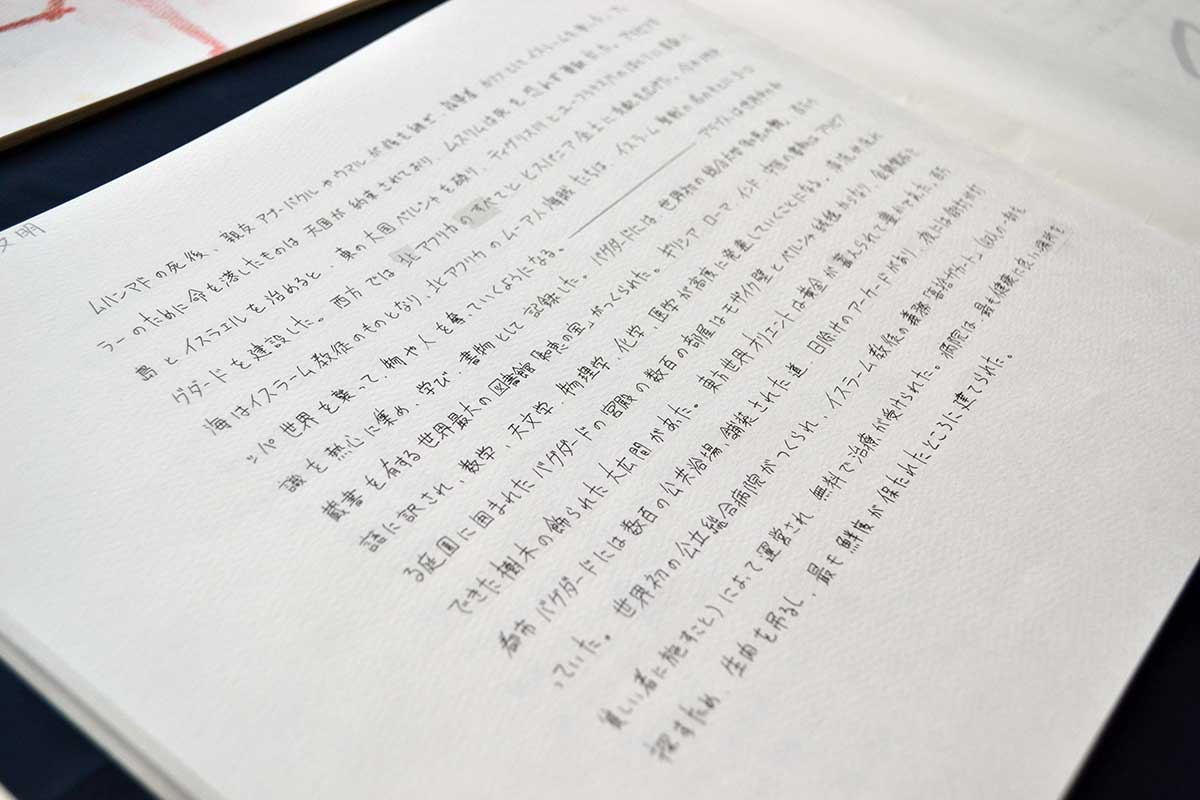 文明
ムハンマドの死後、親友アブー・バクルやウマルが跡を継ぎ、指導者カリフとしてイスラームを率いた。
ラーのために命を落したものは天国が約束されており、ムスリムは死を恐れず奮戦した。アラビア半
島とイスラエルを治めると、東の大国ペルシャを破り、ティグリス川とユーフラテス川の
グダードを建設した。西方では北アフリカのすべてとヒスパニア全土に
海はイスラーム教徒のものとなり、北アフリカのムーア人海賊たちは、イスラーム
ッパ世界を襲って、物や人を奪っていくようになる。 アラブ人は世界の知
識を熱心に集め、学び、書物として記録した。バグダードには、世界初の総合
蔵書を有する世界最大の図書館「知恵の宝」がつくられた。ギリシア、ローマ、インド、中国の書物はアラビア
語に訳され、数学、天文学、物理学、化学、医学が高度に発達していくことになる。
る庭園に囲まれたバグダードの宮殿の数百の部屋はモザイク壁とペルシャ絨毯からなり、
できた樹木の飾られた大広間があった。東方世界オリエントは黄金が蓄えられて豊かであった。
都市バグダードには数百の公共浴場、舗装された道、日除けのアーケードがあり、夜には街灯が灯
っていた。世界初の公立総合病院がつくられ、イスラーム教徒の義務「喜捨ザカート」(収入の一部を
貧しい者に施すこと)によって運営され、無料で治療が受けられた。病院は、最も健康に良い場所を
探すため、生肉を吊るし、最も鮮度が保たれたところに建てられた。